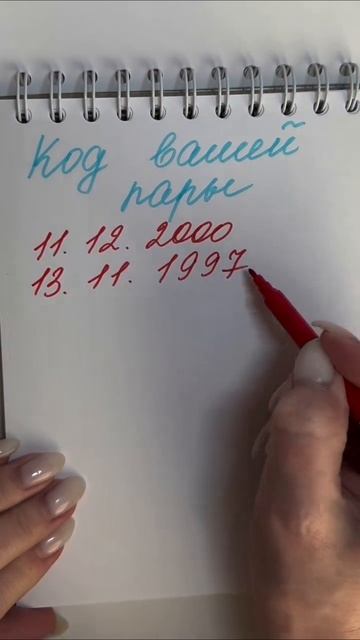 Код вашей
пары
11. 12. 2000
13. 11. 1997